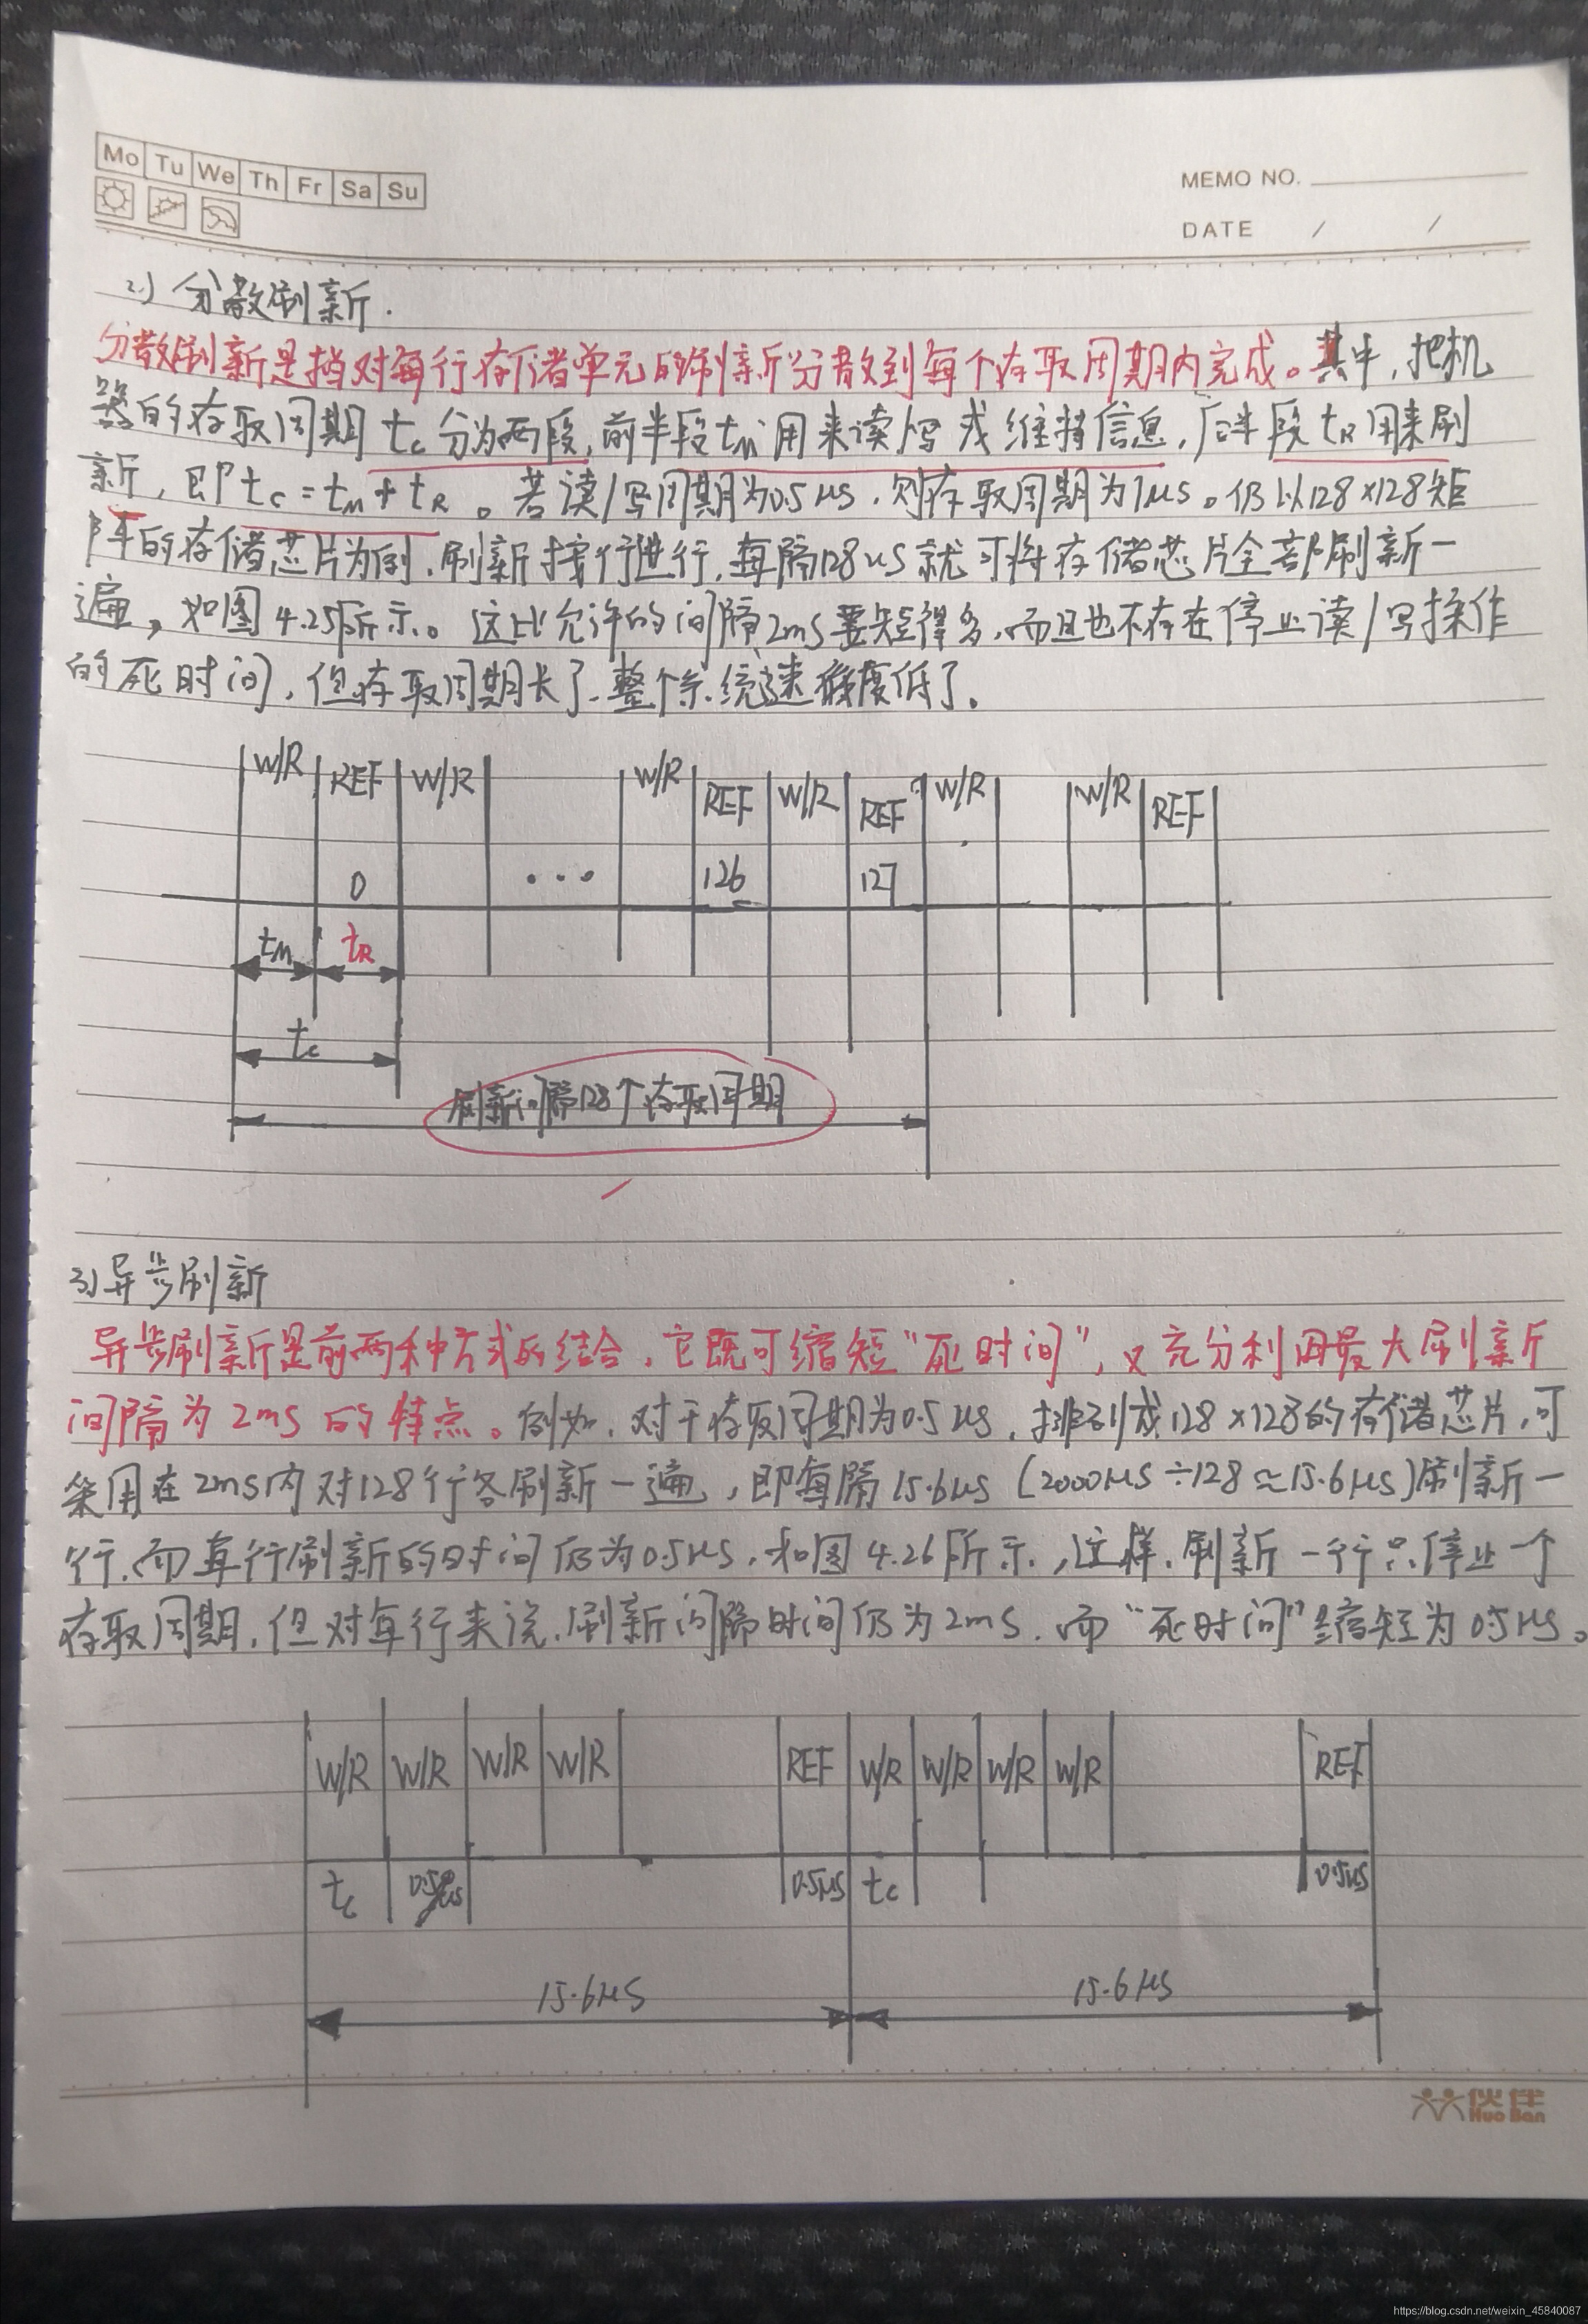 Mo Tu We Th Fr Sa Su
MEMO NO.
DATE / /
2) 分散刷新.
分散刷新是指对每行存储单元的刷新分散到每个存取周期内完成。其中,把机
器的存取周期 tc 分为两段,前半段tM用来读/写或维持信息,后半段tR用来刷
新,即tc=tM+tR。若读/写周期为0.5μs,则存取周期为1μs。仍以128×128矩
阵的存储芯片为例,刷新按行进行,每隔128μs就可将存储芯片全部刷新一
遍,如图4.25所示。这比允许的间隔2ms要短得多,而且也不存在停止读/写操作
的死时间,但存取周期长了,整个系统速度低了。
W/R REF W/R W/R REF W/R REF W/R W/R REF
0 ... 126 127
tM tR
tc
刷新间隔128个存取周期
3)异步刷新
异步刷新是前两种方式的结合,它既可缩短“死时间”,又充分利用最大刷新
间隔为2ms的特点。例如,对于存取周期为0.5μs,排列成128×128的存储芯片,可
采用在2ms内对128行各刷新一遍,即每隔15.6μs(2000μs÷128≈15.6μs)刷新一
行,而每行刷新的时间仍为0.5μs,如图4.26所示,这样,刷新一行只停止一个
存取周期,但对每行来说,刷新间隔时间仍为2ms,而“死时间”缩短为0.5μs。
W/R W/R W/R W/R REF W/R W/R W/R W/R REF
tc 0.5μs 0.5μs tc 0.5μs
15.6μs 15.6μs
伙伴
Huo Ban
https://blog.csdn.net/weixin_45840087